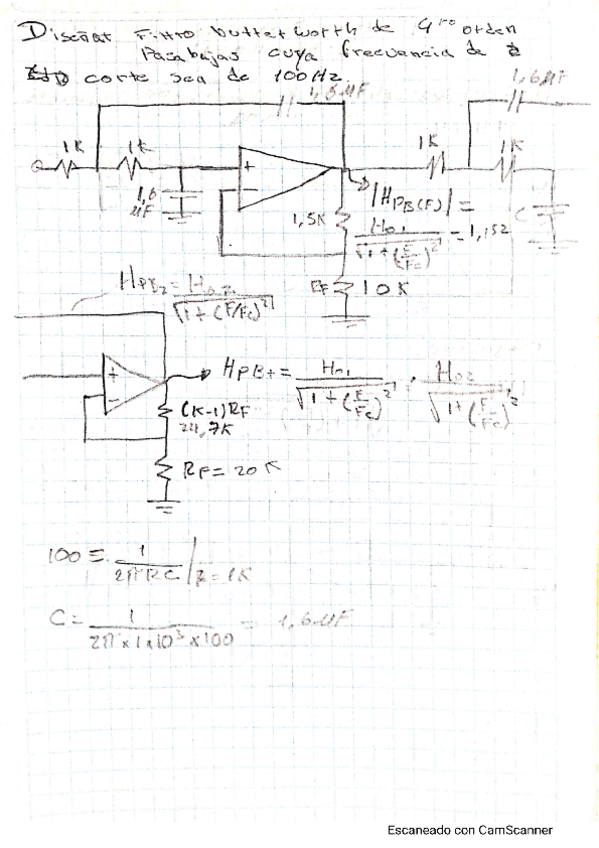 Diseñar Filtro butterworth de 4to orden
Pasabajas cuya frecuencia de
corte sea de 100Hz.
1,6 MF
1,6 MF
1K
1K
1K
1K
+
-
1,6
MF
C
1,5K
|HPB(F)| =
Ho1 / √(1 + (F/Fc)²) = 1,152
RF
10K
HPB2 = Ho2 / √(1 + (F/Fc)²)
+
-
HPB+ = Ho1 / √(1 + (F/Fc)²) · Ho2 / √(1 + (F/Fc)²)
(K-1)RF
24,7K
RF = 20K
100 = 1 / 2πRC | R = 1K
C = 1 / 2π × 1 × 10³ × 100 = 1,6 MF
Escaneado con CamScanner